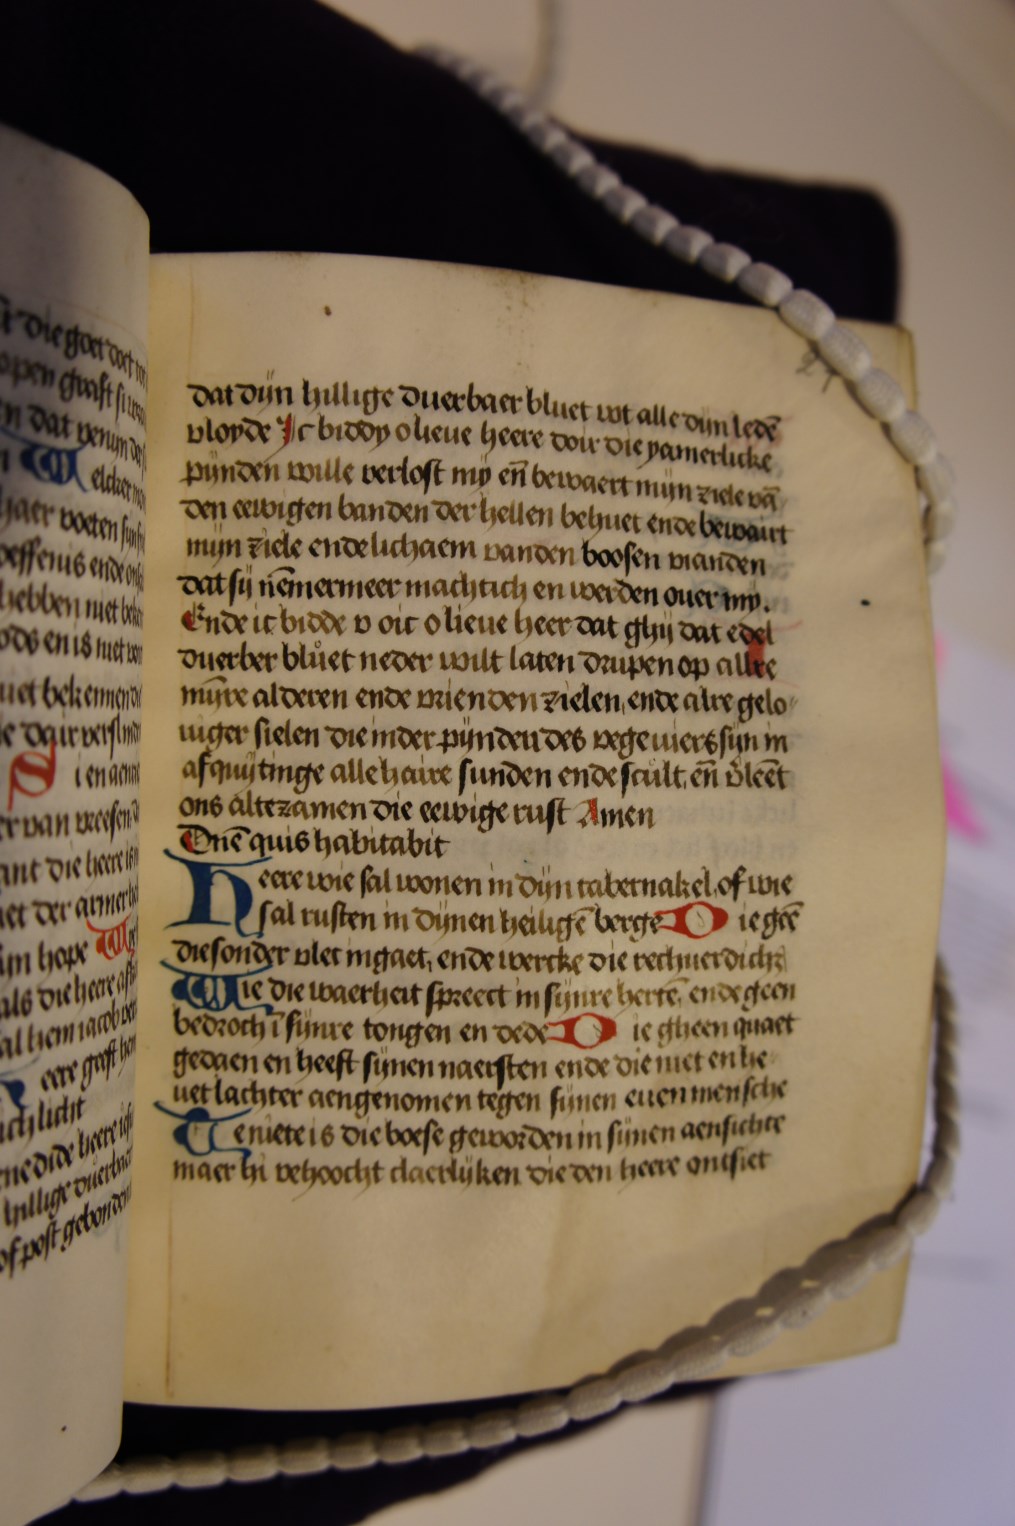 ir die goet doet tot
open graft is
en dat venijn
Welcker
haer voeten sijn
oeffenis ende
hebben niet
ods en is niet
niet bekennen
S i en aen
er van vreesen
ant die heere is
n hope
als die heere
al hem iacob
eere geeft
lich licht
hillige duerbaer
of post gebonden
21
dat dijn hillige duerbaer bluet wt alle dijn ledē
vloyde Ic biddy o lieue heere doir die yamerlicke
pijnden wille verlost mij en̄ bewaert mijn ziele vā
den eewigen banden der hellen behuet ende bewairt
mijn ziele ende lichaem vanden boosen vianden
dat sij nēmermeer machtich en werden ouer my.
Ende ic bidde v oic o lieue heer dat ghij dat edel
duerber blůet neder wilt laten drupen op allre
mijnre alderen ende vrienden zielen, ende alre gelo
uiger sielen die inder pijnden des vegeuiers sijn in
afquijtinge alle haire sunden ende scult, en̄ v̄leēt
ons altezamen die eewige rust Amen
Dn̄e quis habitabit
Heere wie sal wonen in dijn tabernakel, of wie
sal rusten in dijnen heiligē berge Die geē
die sonder vlec ingaet, ende wercke die rechuerdicht
Wie die waerheit spreect in sijnre hertē, ende geen
bedroch ī sijnre tongen en dede Die gheen quaet
gedaen en heeft sijnen naersten ende die niet en he
uet lachter aengenomen tegen sijnen euen mensche
Te niete is die boese geworden in sijnen aensichte
maer hi vehoocht claerlijken die den heere ontsiet